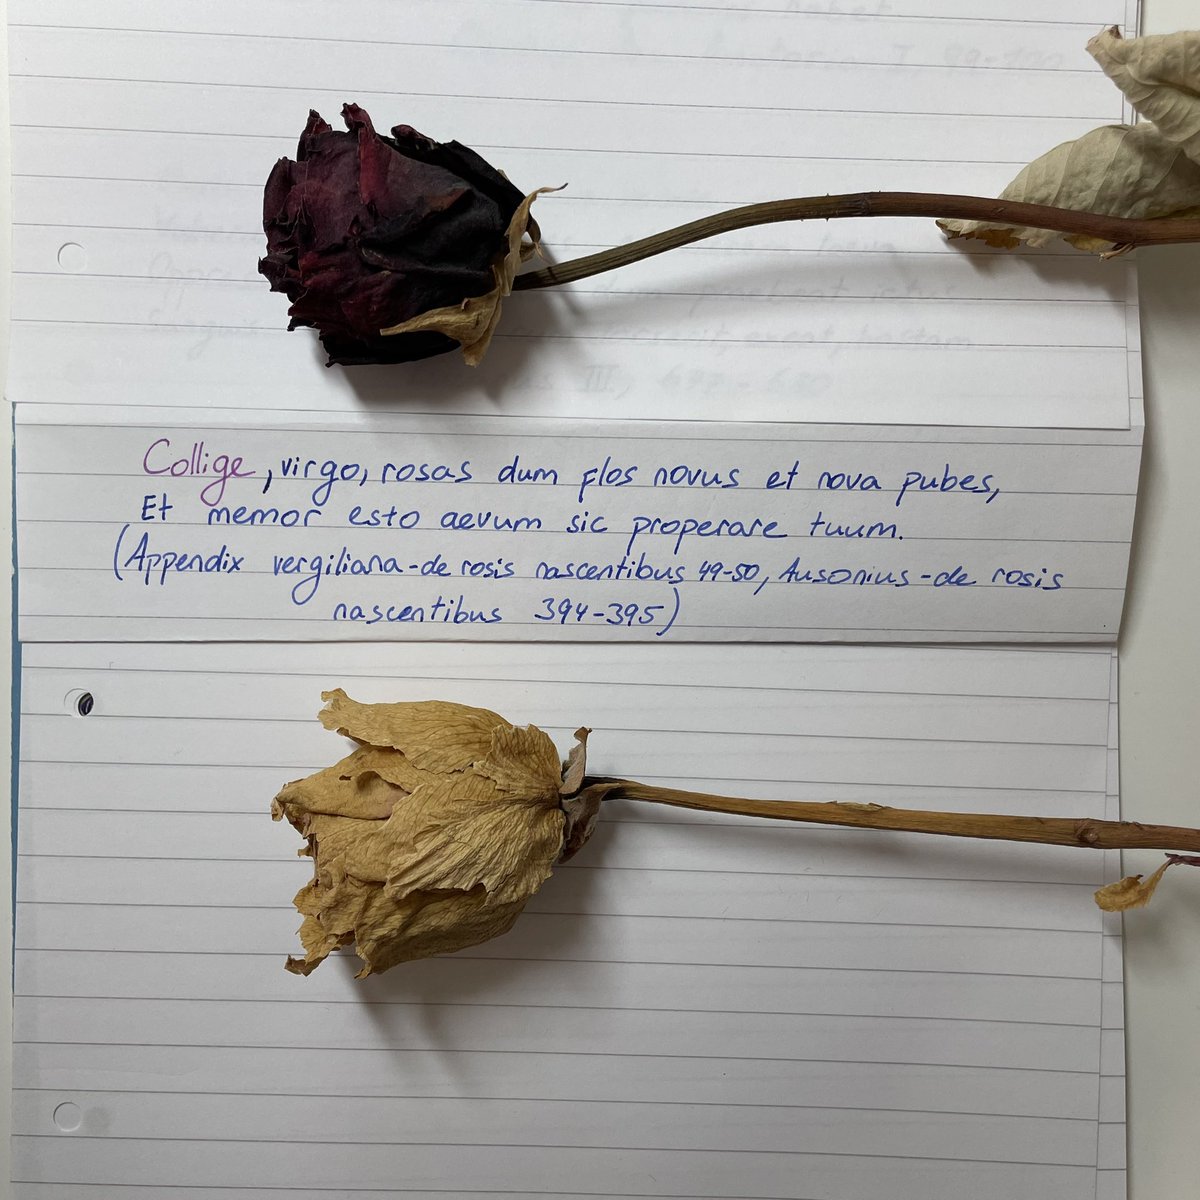 Collige, virgo, rosas dum flos novus et nova pubes,
Et memor esto aevum sic properare tuum.
(Appendix vergiliana-de rosis nascentibus 49-50, Ausonius-de rosis
nascentibus 394-395)